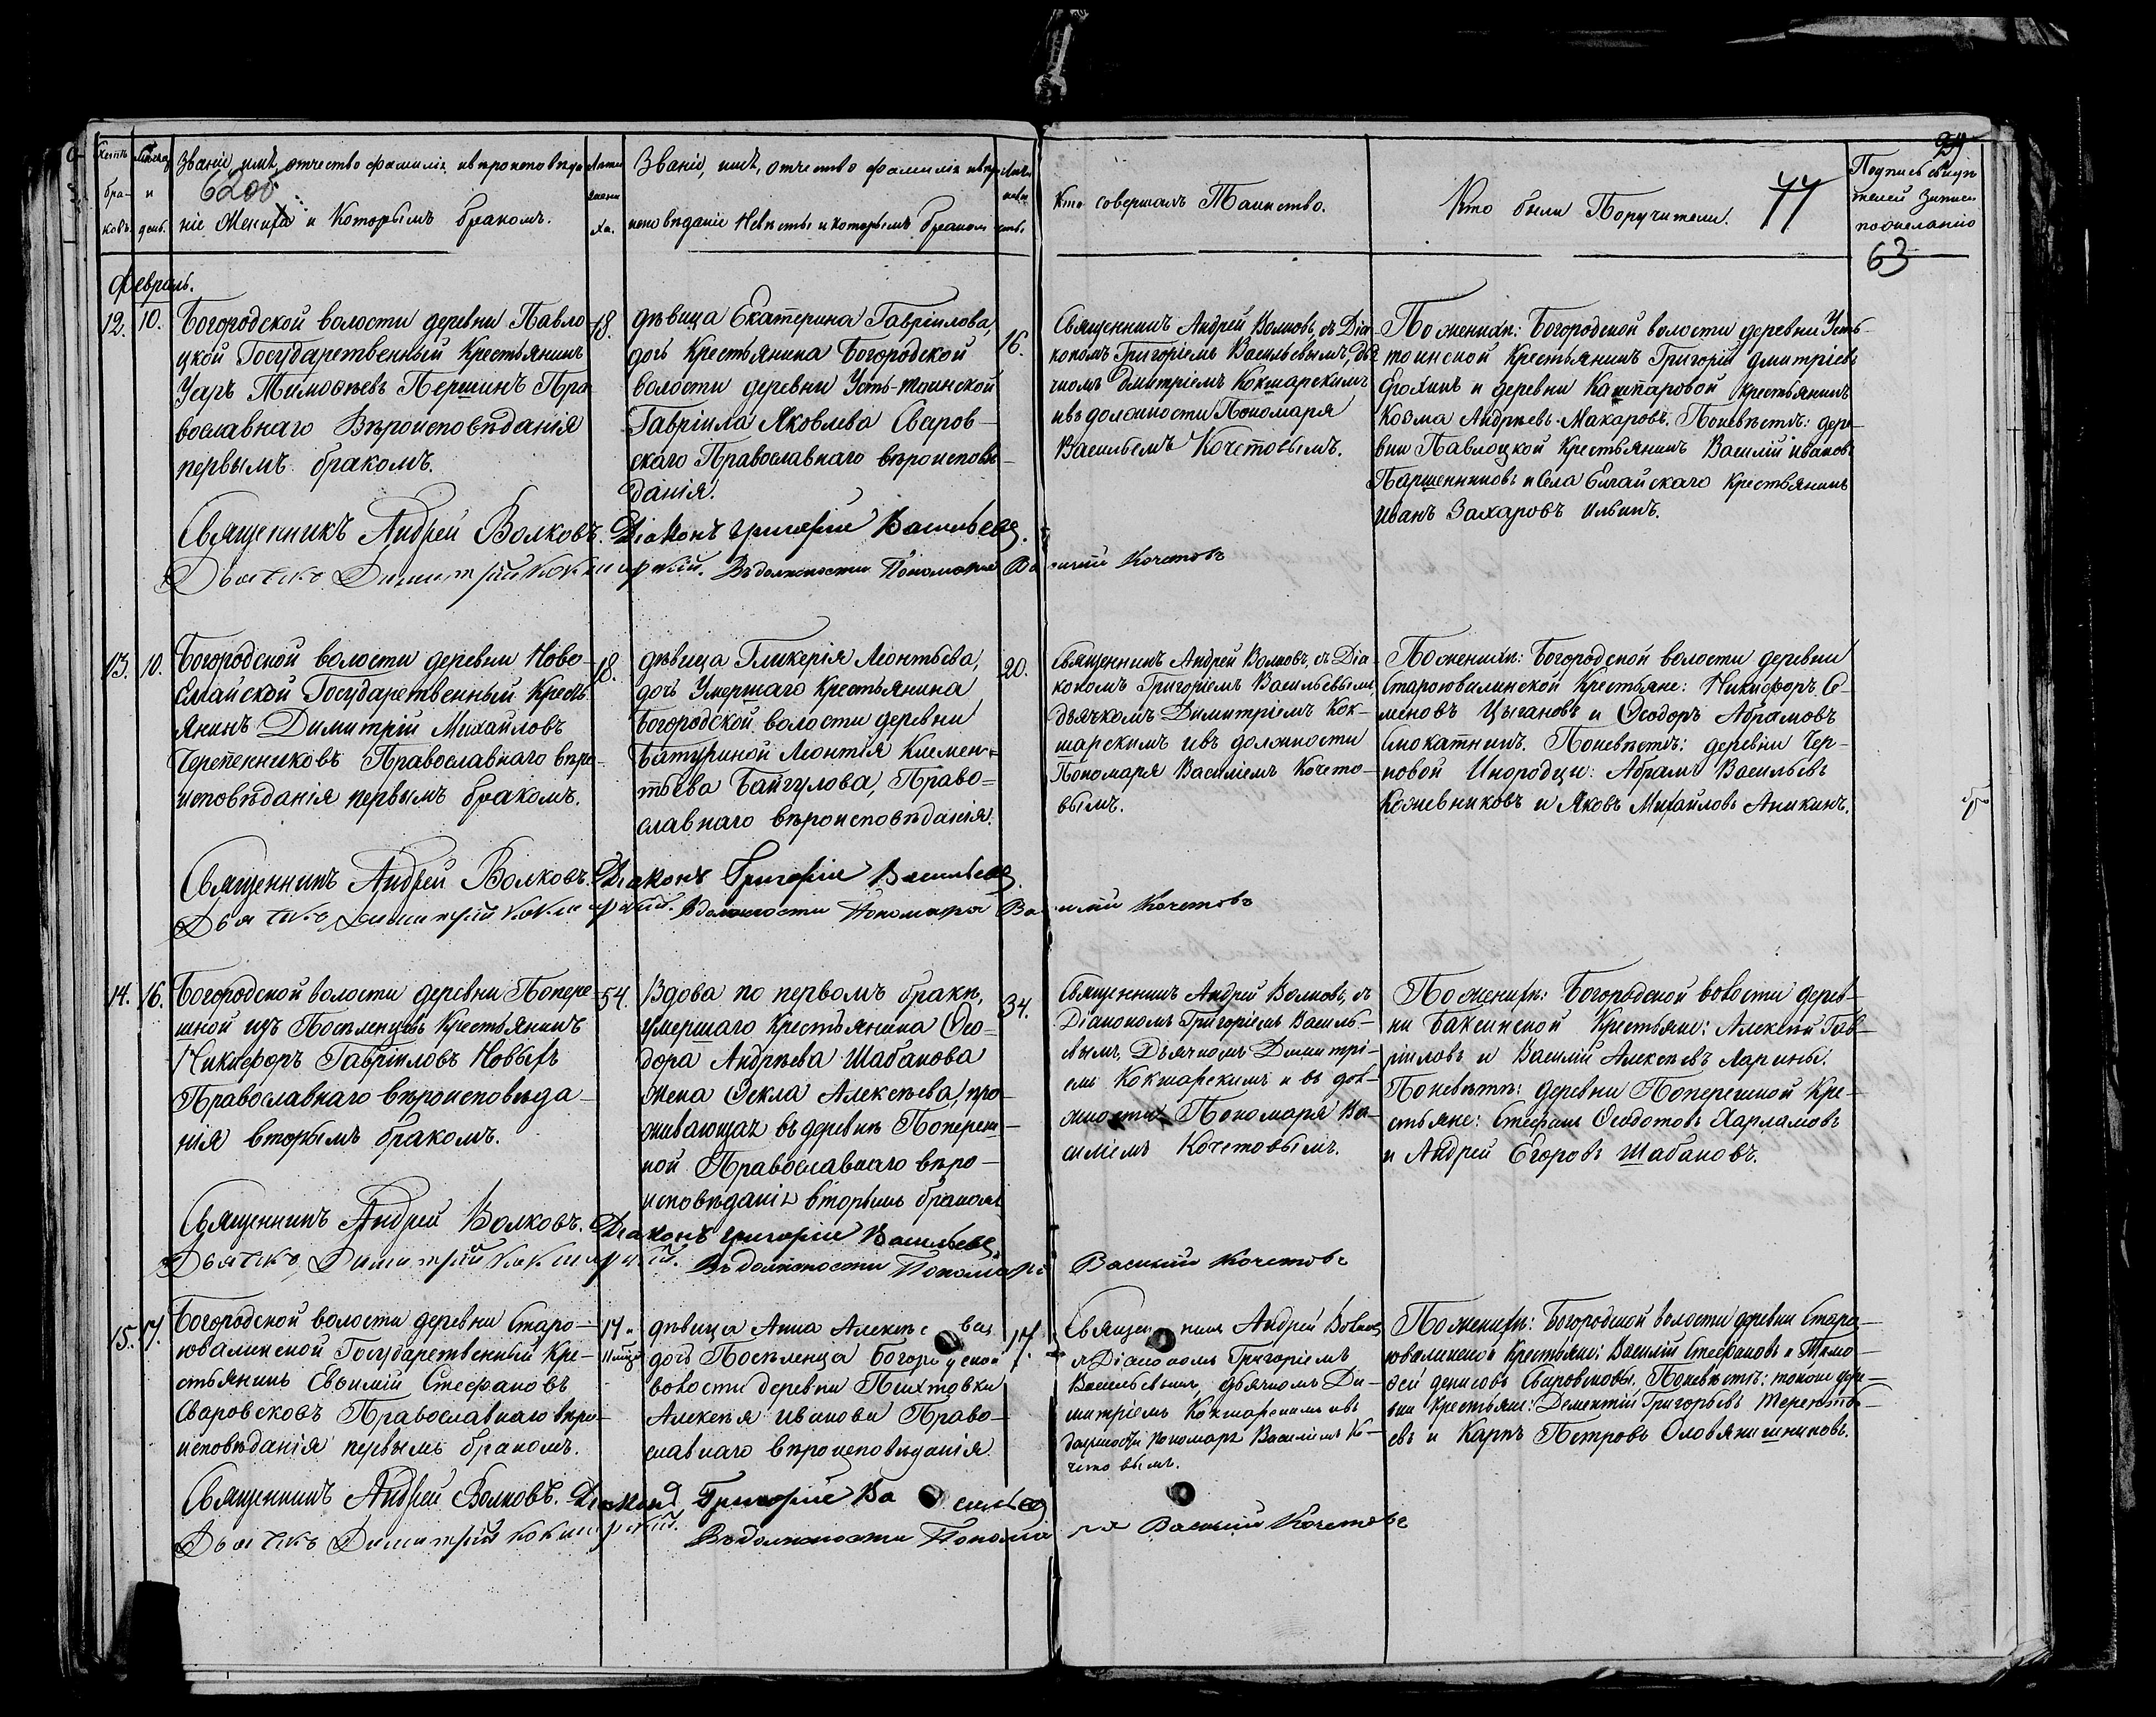 Счетъ бра-ковъ.
Мѣсяцъ и день.
Званіе, имя, отчество фамилія, и вѣроисповѣда
ніе Жениха и Которымъ бракомъ.
6200
Лѣта жени ха.
Званіе, имя, отчество фамилія и вѣр
исповѣданіе Невѣсты и которымъ бракомъ
Лѣта невѣ сты.
Кто совершалъ Таинство.
Кто были Поручители.
77
29
Подпись свидѣ
телей Записи
по желанію
63
Февраль.
12. 10.
Богородской волости деревни Павло
цкой Государственный Крестьянинъ
Уаръ Тимофеевъ Першинъ Пра
вославнаго Вѣроисповѣданія
первымъ бракомъ.
18.
дѣвица Екатерина Гавріилова,
дочь Крестьянина Богородской
волости деревни Усть-тоинской
Гавріила Яковлева Сваров-
скаго Православнаго вѣроисповѣ-
данія.
16.
Священникъ Андрей Волковъ, съ Діа-
кономъ Григоріемъ Васильевымъ, дья
чкомъ Дмитріемъ Кокшарскимъ
и въ должности Пономаря
Васильемъ Кочетовымъ.
По женихѣ: Богородской волости деревни Усть-
тоинской Крестьянинъ Григорій Дмитріевъ
Ерохинъ и деревни Каштаровой крестьянинъ
Козма Андреевъ Макаровъ. По невѣстѣ: дере-
вни Павлоцкой Крестьянинъ Василій Ивановъ
Паршенниковъ и Села Елгайскаго Крестьянинъ
Иванъ Захаровъ Ильинъ.
Священникъ Андрей Волковъ. Діаконъ Григорій Васильевъ.
Дьячекъ Димитрій Кокшарскій. Въ должности Пономаря Василій Кочетовъ
13. 10.
Богородской волости деревни Ново-
Елгайской Государственный Кресть
янинъ Димитрій Михайловъ
Черепенниковъ Православнаго вѣро-
исповѣданія первымъ бракомъ.
18.
дѣвица Гликерія Леонтьева,
дочь Умершаго Крестьянина
Богородской волости деревни
Батуриной Леонтія Клемен=
тьева Байгулова, Право=
славнаго вѣроисповѣданія.
20.
Священникъ Андрей Волковъ, съ Діа-
кономъ Григоріемъ Васильевымъ,
дьячкомъ Димитріемъ Кок-
шарскимъ и въ должности
Пономаря Василіемъ Кочето-
вымъ.
По женихѣ: Богородской волости деревни
Староювалинской Крестьяне: Никифоръ Се-
меновъ Цыгановъ и Ѳеодоръ Абрамовъ
Смокатнинъ. По невѣстѣ: деревни Чер-
новой Инородцы: Абрамъ Васильевъ
Кожевниковъ и Яковъ Михайловъ Аникинъ.
Священникъ Андрей Волковъ. Діаконъ Григорій Васильевъ.
Дьячекъ Димитрій Кокшарскій. В должности Пономаря Василій Кочетовъ
14. 16.
Богородской волости деревни Попере-
шной изъ Поселенцевъ Крестьянинъ
Никифоръ Гавріиловъ Новыхъ
Православнаго вѣроисповѣда-
нія вторымъ бракомъ.
54.
Вдова по первомъ бракѣ,
умершаго Крестьянина Ѳео-
дора Андреева Шабанова
жена Ѳекла Алексѣева, про-
живающая въ деревнѣ Попереш-
ной Православнаго вѣро-
исповѣданія вторымъ бракомъ
34.
Священникъ Андрей Волковъ, съ
Діакономъ Григоріемъ Василь-
евымъ, Дьячкомъ Димитрі-
емъ Кокшарскимъ и въ дол-
жности Пономаря Ва-
силіемъ Кочетовымъ.
По женихѣ: Богородской волости дерев-
ни Баксинской Крестьяне: Алексѣй Гав-
ріиловъ и Василій Алексѣевъ Ларины.
По невѣстѣ: деревни Поперешной Кре-
стьяне: Стефанъ Ѳеодотовъ Харламовъ
и Андрей Егоровъ Шабановъ.
Священникъ Андрей Волковъ. Діаконъ Григорій Васильевъ.
Дьячекъ Димитрій Кокшарскій. Въ должности Пономаря Василій Кочетовъ
15. 17.
Богородской волости деревни Старо-
ювалинской Государственный Кре-
стьянинъ Евѳимій Стефановъ
Сваровсковъ Православнаго вѣро-
исповѣданія первымъ бракомъ.
17.
11 мѣся.
дѣвица Анна Алексѣева
дочь Поселенца Богородской
волости деревни Пихтовки
Алексѣя Иванова Право-
славнаго вѣроисповѣданія.
17.
Священникъ Андрей Волковъ
съ Діакономъ Григоріемъ
Васильевымъ, дьячкомъ Ди-
митріемъ Кокшарскимъ и въ
должности Пономаря Василіемъ Ко-
четовымъ.
По женихѣ: Богородской волости деревни Старо-
ювалинской Крестьяне: Василій Стефановъ и Тимо-
ѳей Денисовъ Сваровсковы. По невѣстѣ: тойже дере-
вни Крестьяне: Дементій Григорьевъ Терентъ-
евъ и Карпъ Петровъ Оловянишниковъ.
Священникъ Андрей Волковъ. Діаконъ Григорій Васильевъ
Дьячекъ Димитрій Кокшарскій. Въ должности Пономаря Василій Кочетовъ